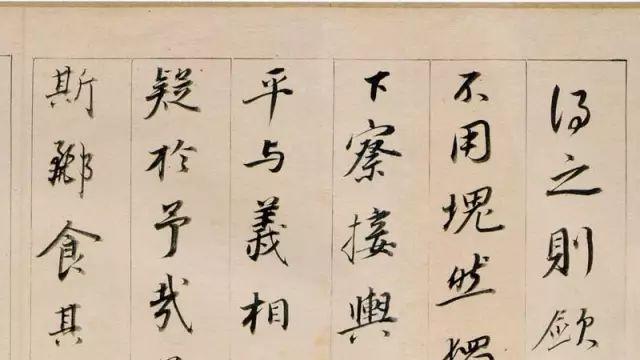 得之則
不用塊然
下寮接輿
平与義相
疑於予哉
斯鄉食其